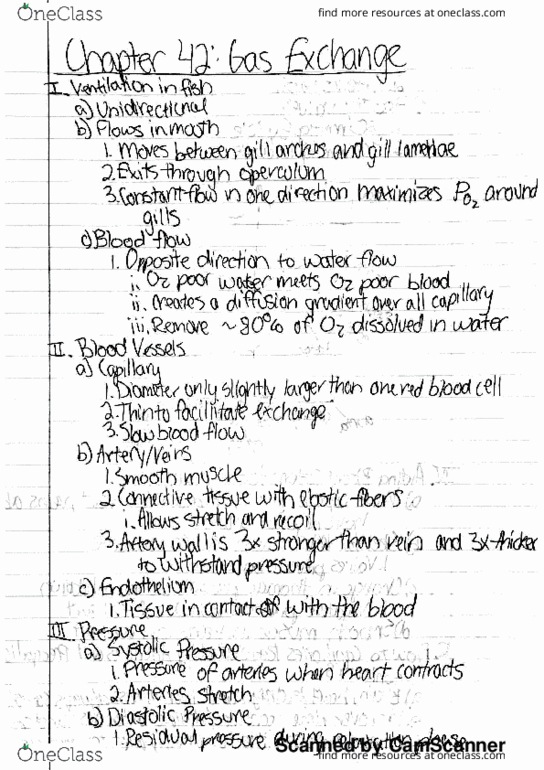 OneClass
find more resources at oneclass.com
Chapter 42: Gas Exchange
I. Ventilation in fish
a) Unidirectional
b) Flows in mouth
1. Moves between gill arches and gill lamellae
2. Exits through operculum
3. Constant flow in one direction maximizes PO2 around
gills
c) Blood flow
1. Opposite direction to water flow
i. O2 poor water meets O2 poor blood
ii. creates a diffusion gradient over all capillary
iii. Remove ~80% of O2 dissolved in water
II. Blood Vessels
a) Capillary
1. Diameter only slightly larger than one red blood cell
2. Thin to facilitate exchange
3. Slow blood flow
b) Artery/Veins
1. Smooth muscle
2. Connective tissue with elastic fibers
i. Allows stretch and recoil
3. Artery wall is 3x stronger than vein and 3x thicker
to withstand pressure
c) Endothelium
1. Tissue in contact with the blood
III Pressure
a) Systolic Pressure
1. Pressure of arteries when heart contracts
2. Arteries stretch
b) Diastolic Pressure
1. Residual pressure during relaxation phase
Scanned by CamScanner
OneClass
find more resources at oneclass.com